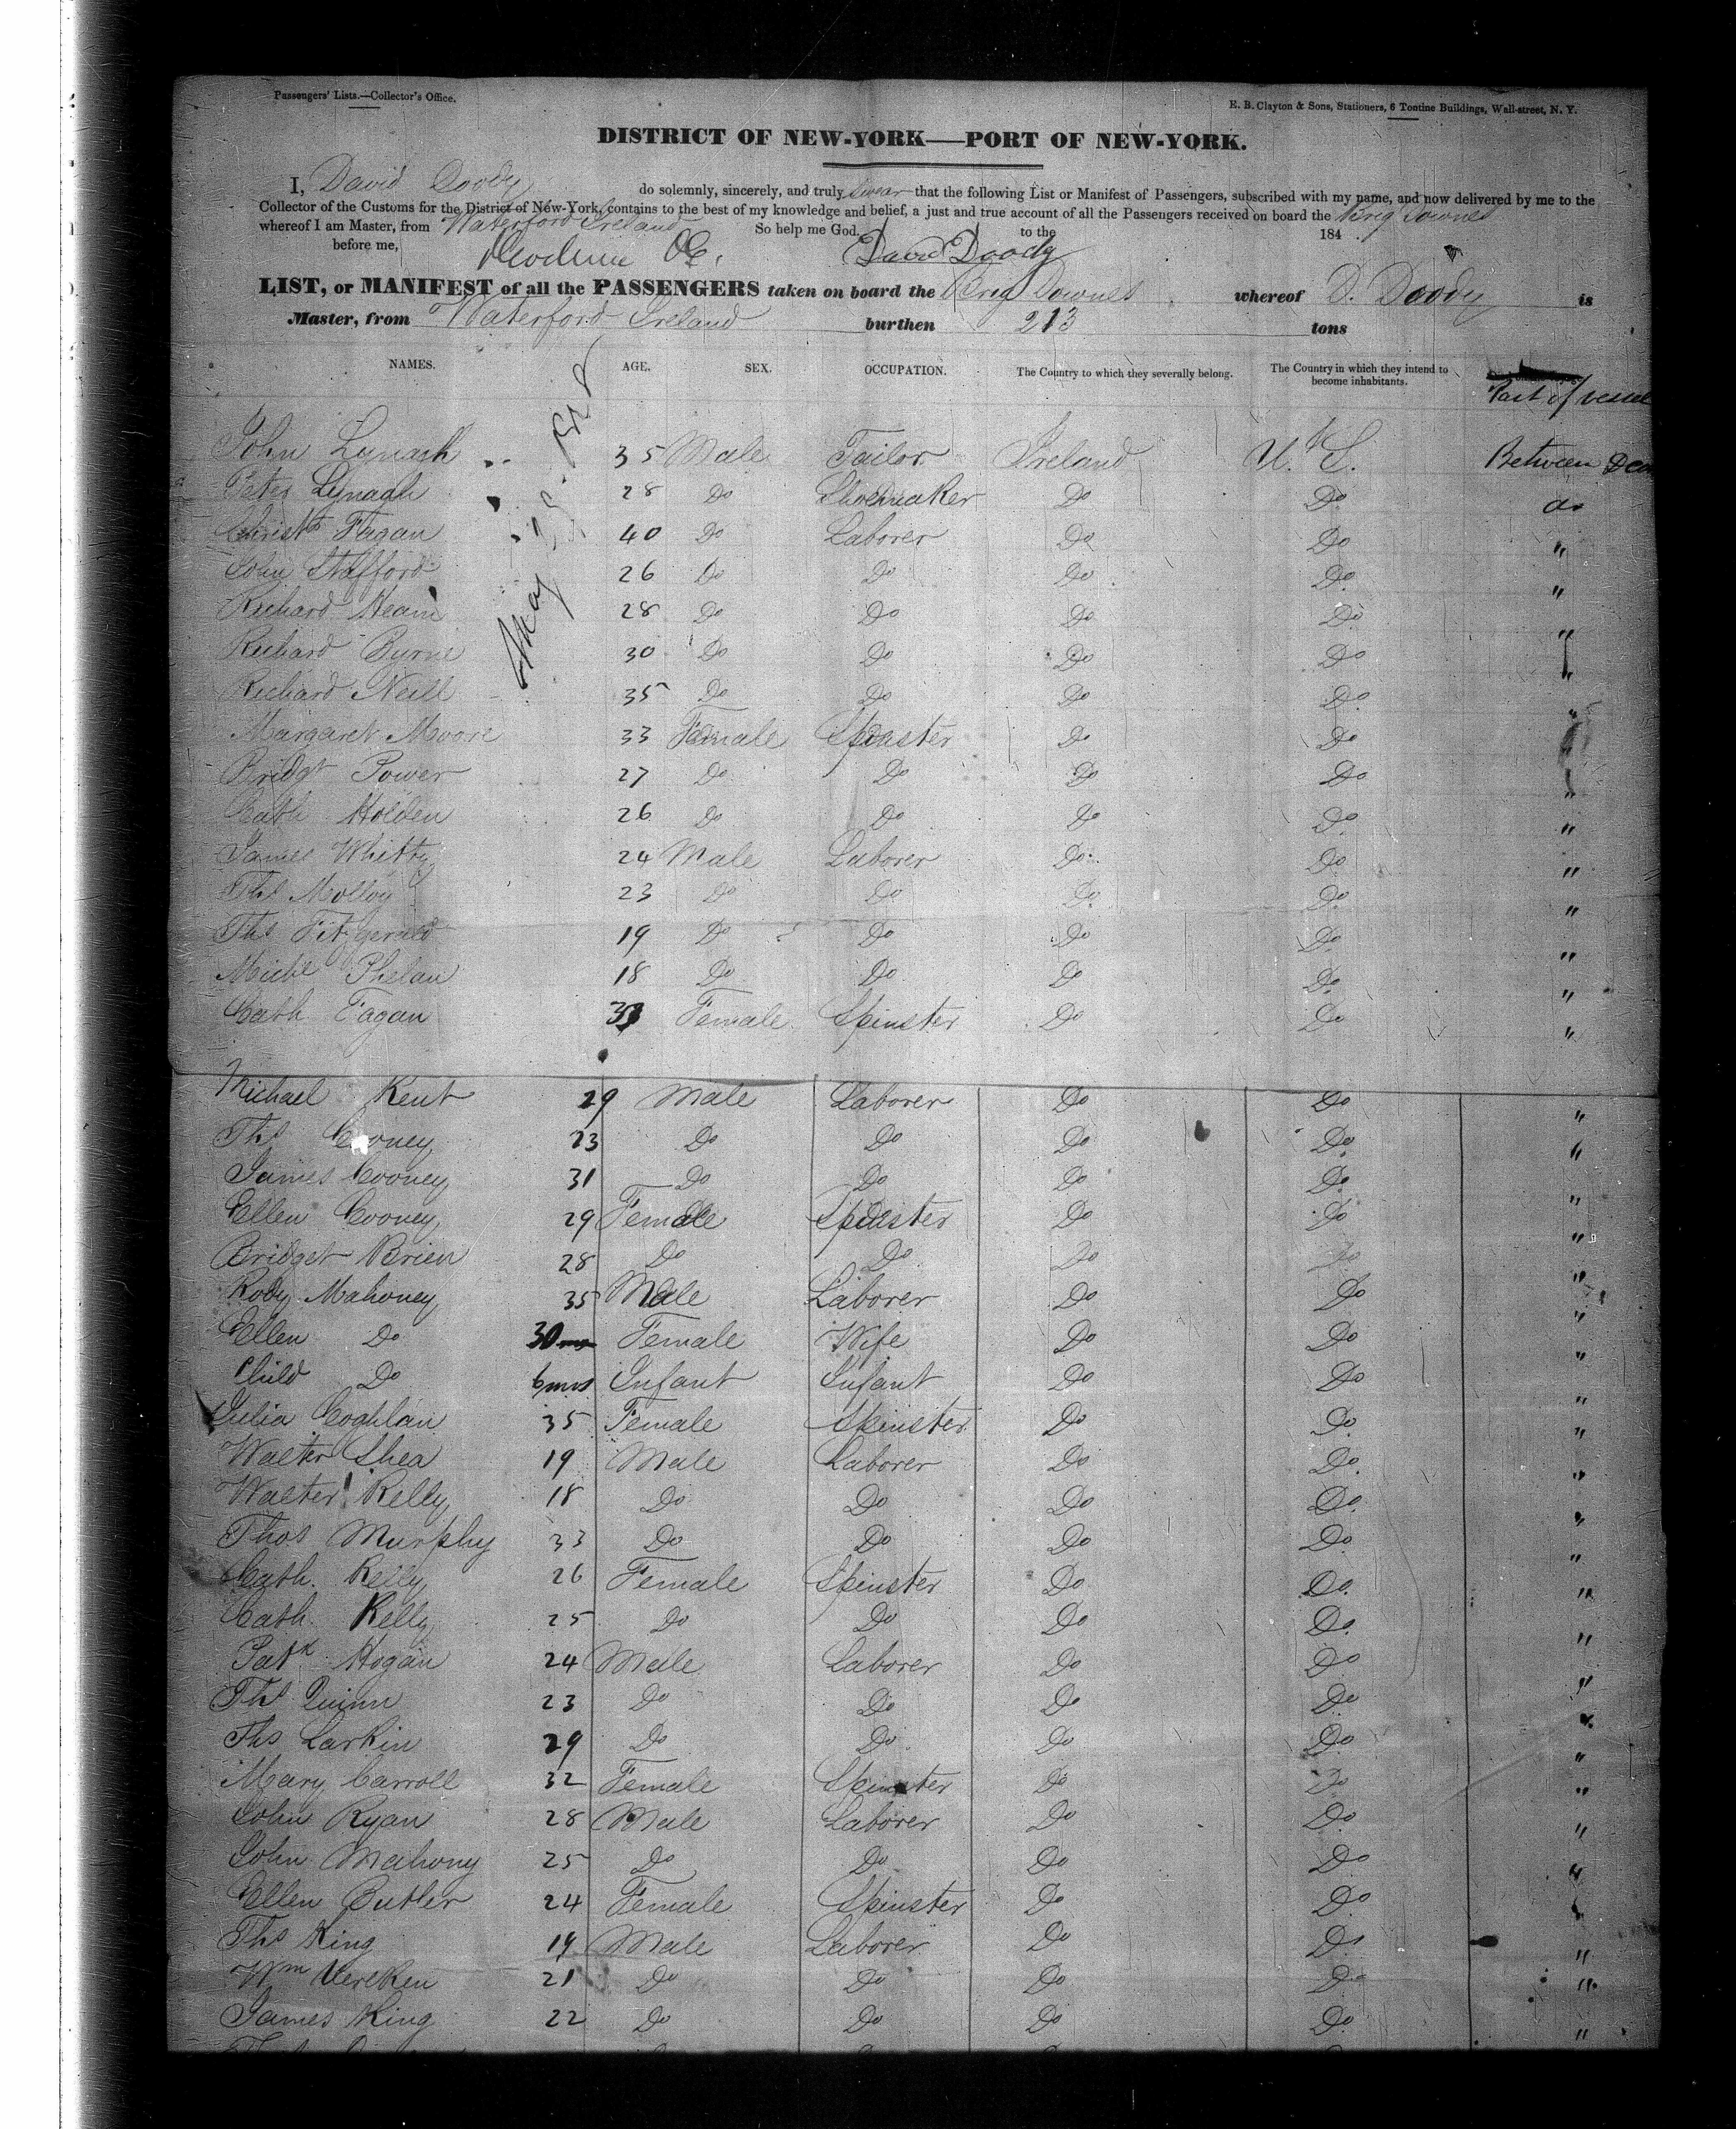 Passengers' Lists.—Collector's Office.
E. B. Clayton & Sons, Stationers, 6 Tontine Buildings, Wall-street, N. Y.
DISTRICT OF NEW-YORK—PORT OF NEW-YORK.
I, David Doody do solemnly, sincerely, and truly swear that the following List or Manifest of Passengers, subscribed with my name, and now delivered by me to the
Collector of the Customs for the District of New-York, contains to the best of my knowledge and belief, a just and true account of all the Passengers received on board the Brig Downes
whereof I am Master, from Waterford Ireland So help me God. to the 184
before me, David Doody
LIST, or MANIFEST of all the PASSENGERS taken on board the Brig Downes whereof D. Doody is
Master, from Waterford Ireland burthen 213 tons
NAMES. AGE. SEX. OCCUPATION. The Country to which they severally belong. The Country in which they intend to become inhabitants. Part of vessel
May 25. 1848
John Lynagh 35 Male Tailor Ireland U. S. Between Deck
Peter Lynagh 28 Do Shoemaker Do Do do
Christr Fagan 40 Do Laborer Do Do "
John Stafford 26 Do Do Do Do "
Richard Hearn 28 Do Do Do Do "
Richard Byrne 30 Do Do Do Do "
Richard Neill 35 Do Do Do Do "
Margaret Moore 33 Female Spinster Do Do "
Bridgt Power 27 Do Do Do Do "
Cath Holden 26 Do Do Do Do "
James Whitty 24 Male Laborer Do Do "
Ths Molloy 23 Do Do Do Do "
Ths Fitzgerald 19 Do Do Do Do "
Michl Phelan 18 Do Do Do Do "
Cath Fagan Female Spinster Do Do "
Michael Kent 29 Male Laborer Do Do "
Ths Cooney 23 Do Do Do Do "
James Cooney 31 Do Do Do Do "
Ellen Cooney 29 Female Spinster Do Do "
Bridget Brien 28 Do Do Do Do "
Rody Mahoney 35 Male Laborer Do Do "
Ellen Do 30 Female Wife Do Do "
Child Do 6 mos Infant Infant Do Do "
Julia Coghlan 35 Female Spinster Do Do "
Walter Shea 19 Male Laborer Do Do "
Walter Kelly 18 Do Do Do Do "
Thos Murphy 33 Do Do Do Do "
Cath. Kelly 26 Female Spinster Do Do "
Cath. Kelly 25 Do Do Do Do "
Patk Hogan 24 Male Laborer Do Do "
Ths Quinn 23 Do Do Do Do "
Ths Larkin 29 Do Do Do Do "
Mary Carroll 32 Female Spinster Do Do "
John Ryan 28 Male Laborer Do Do "
John Mahony 25 Do Do Do Do "
Ellen Butler 24 Female Spinster Do Do "
Ths King 19 Male Laborer Do Do "
Wm 21 Do Do Do Do "
James King 22 Do Do Do Do "